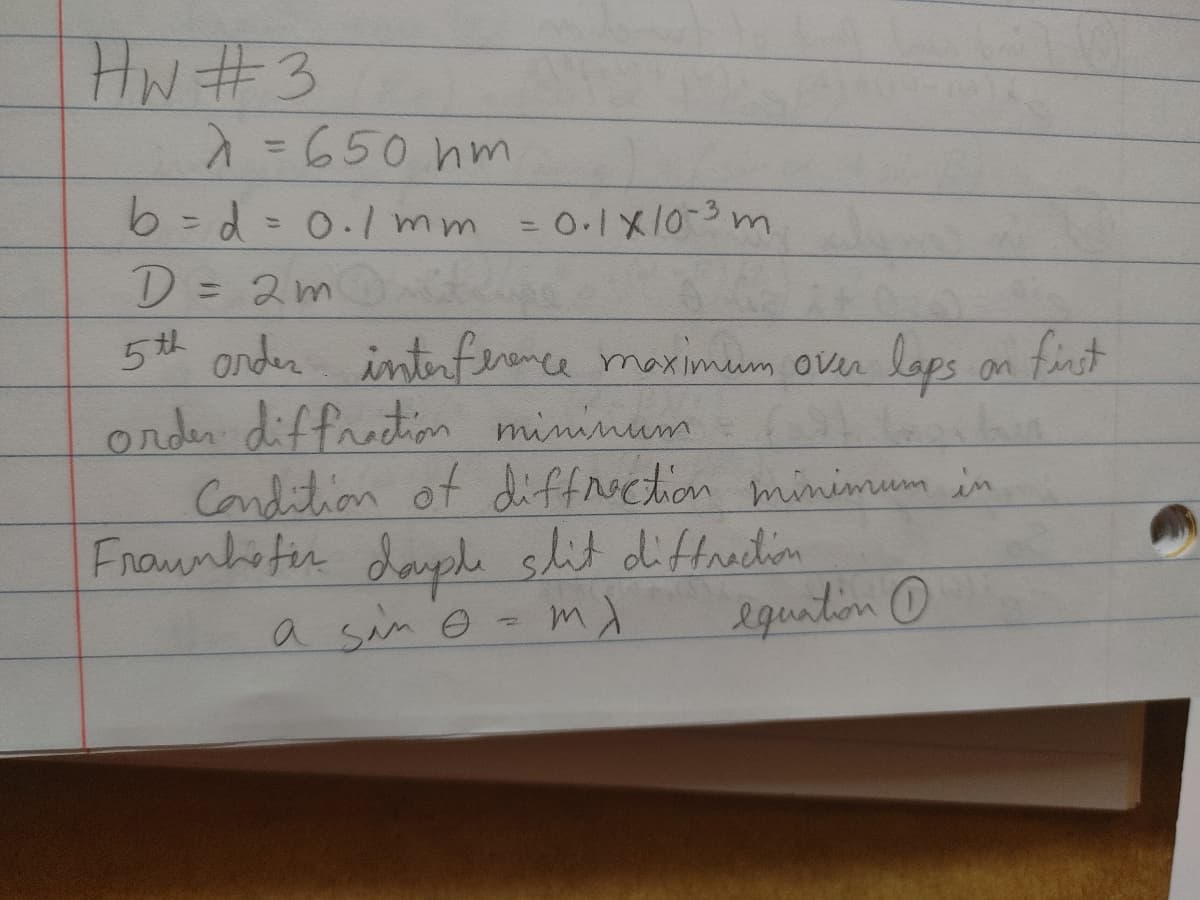 HW #3
λ = 650 nm
b = d = 0.1 mm = 0.1 x 10-³ m
D = 2m
5th order interference maximum over laps on first
order diffraction mininum
Condition of diffraction minimum in
Fraunhofer douple slit diffraction
a sin θ = mλ equation ①